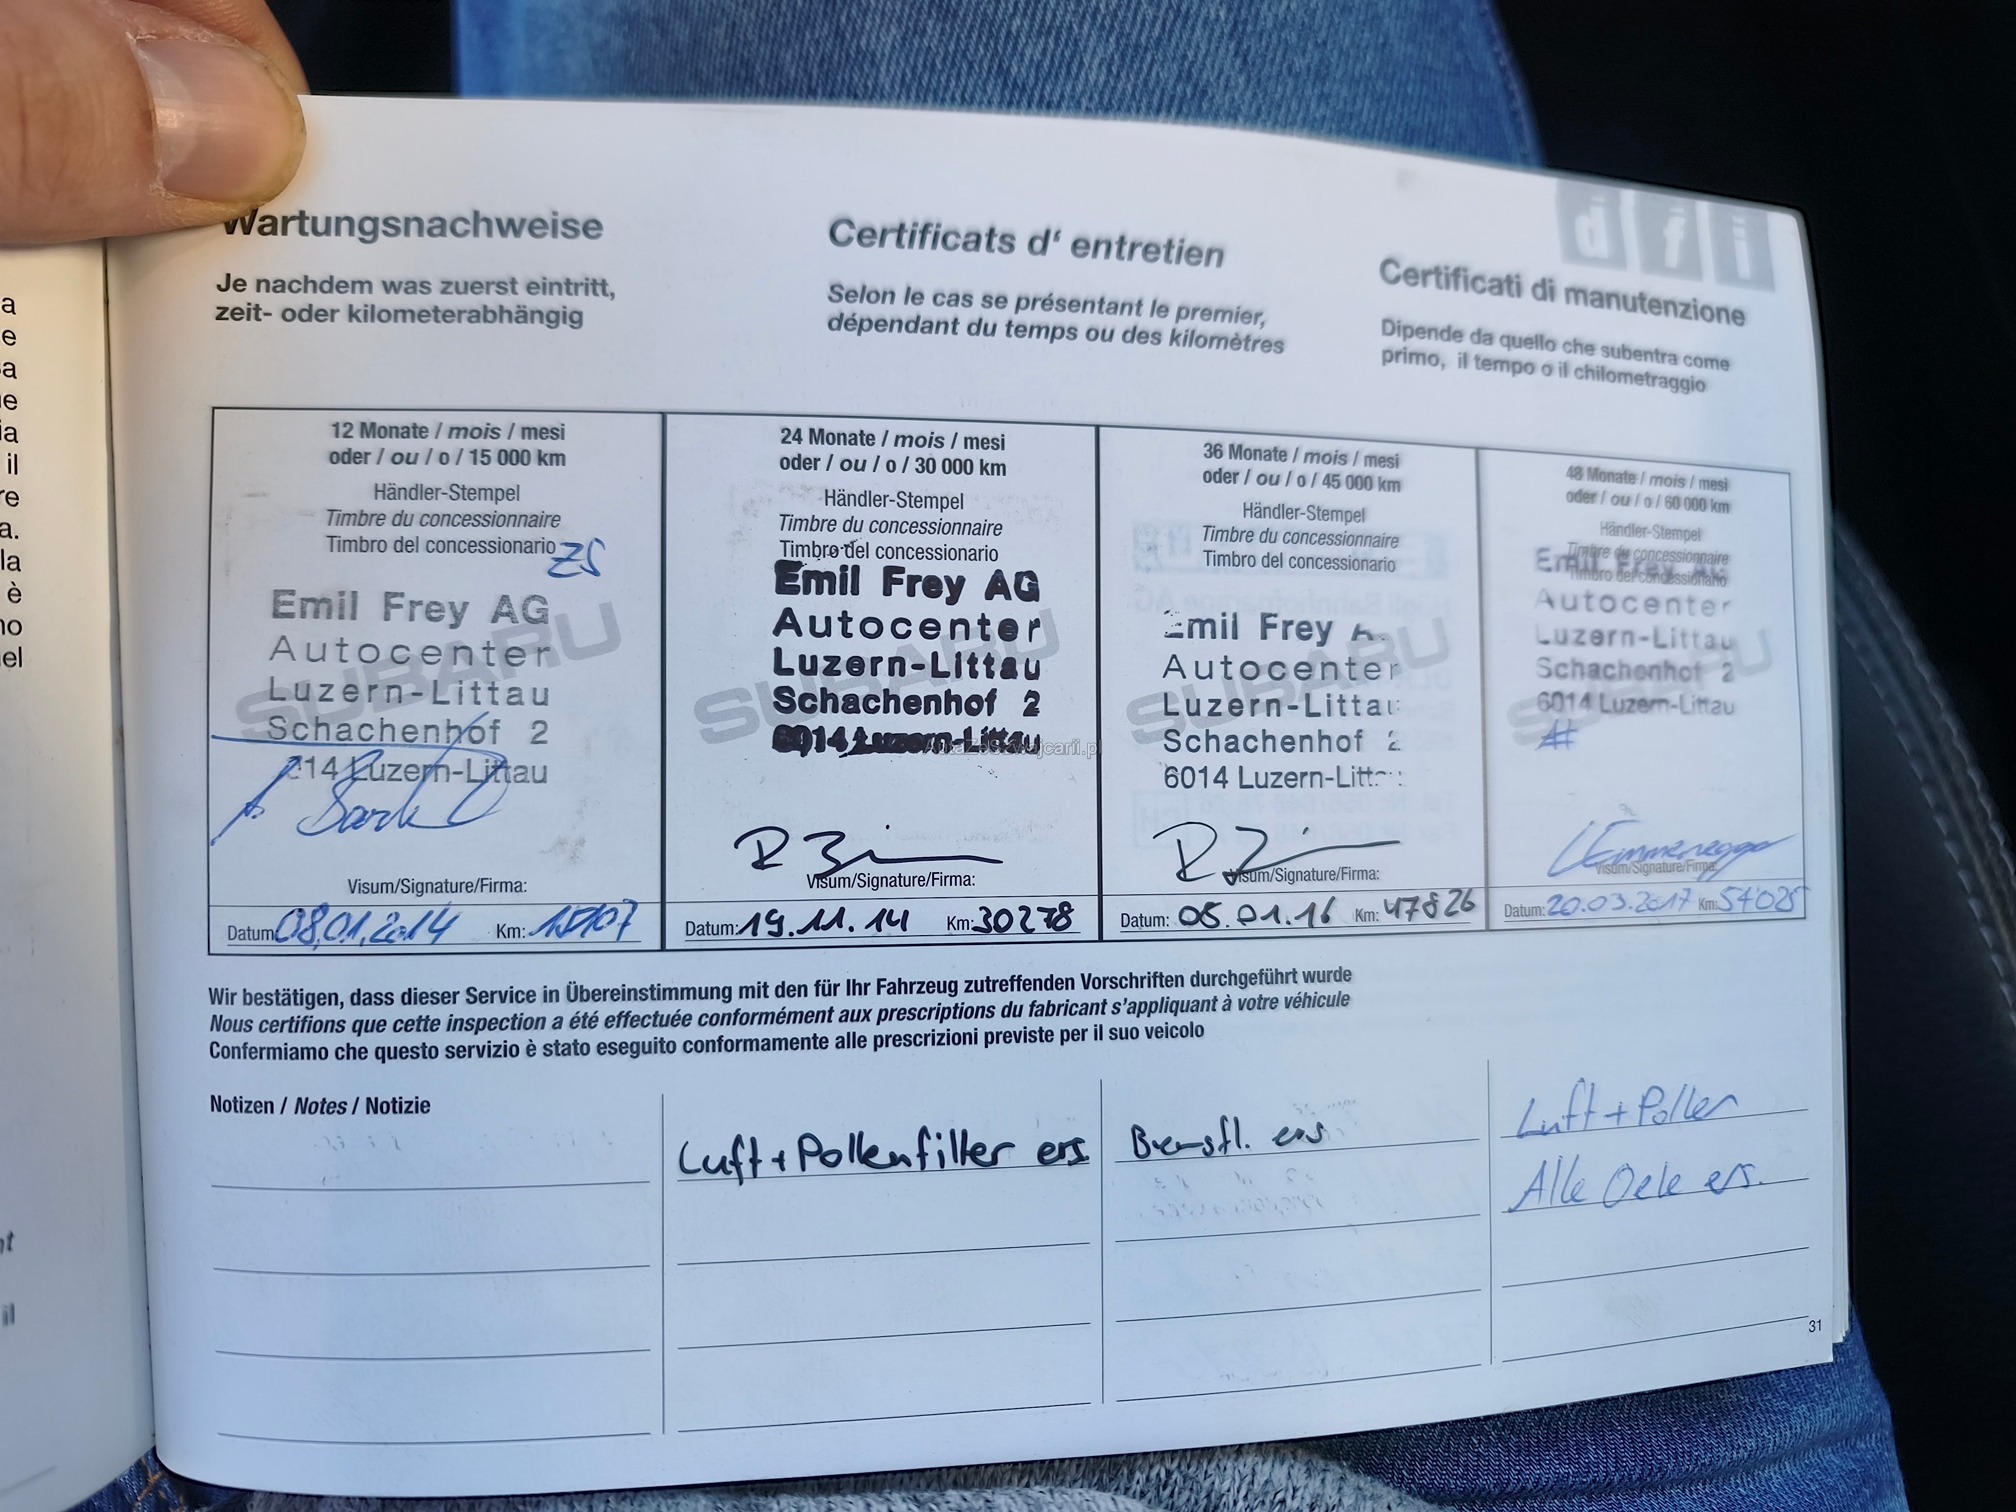 a
e
a
e
ia
il
re
a.
la
è
no
el
il
Wartungsnachweise
Je nachdem was zuerst eintritt,
zeit- oder kilometerabhängig
Certificats d' entretien
Selon le cas se présentant le premier,
dépendant du temps ou des kilomètres
dfi
Certificati di manutenzione
Dipende da quello che subentra come
primo, il tempo o il chilometraggio
12 Monate / mois / mesi
oder / ou / o / 15 000 km
Händler-Stempel
Timbre du concessionnaire
Timbro del concessionario
ZS
SUBARU
Emil Frey AG
Autocenter
Luzern-Littau
Schachenhof 2
6014 Luzern-Littau
Visum/Signature/Firma:
Datum: 08.01.2014 Km: 15107
24 Monate / mois / mesi
oder / ou / o / 30 000 km
Händler-Stempel
Timbre du concessionnaire
Timbro del concessionario
SUBARU
Emil Frey AG
Autocenter
Luzern-Littau
Schachenhof 2
6014 Luzern-Littau
Visum/Signature/Firma:
Datum: 19.11.14 Km: 30278
36 Monate / mois / mesi
oder / ou / o / 45 000 km
Händler-Stempel
Timbre du concessionnaire
Timbro del concessionario
SUBARU
Emil Frey A
Autocenter
Luzern-Littau
Schachenhof 2
6014 Luzern-Litt
Visum/Signature/Firma:
Datum: 05.01.16 Km: 47826
48 Monate / mois / mesi
oder / ou / o / 60 000 km
Händler-Stempel
Timbre du concessionnaire
Timbro del concessionario
SUBARU
Emil Frey AG
Autocenter
Luzern-Littau
Schachenhof 2
6014 Luzern-Littau
Visum/Signature/Firma:
Datum: 20.03.2017 Km: 57025
Wir bestätigen, dass dieser Service in Übereinstimmung mit den für Ihr Fahrzeug zutreffenden Vorschriften durchgeführt wurde
Nous certifions que cette inspection a été effectuée conformément aux prescriptions du fabricant s'appliquant à votre véhicule
Confermiamo che questo servizio è stato eseguito conformamente alle prescrizioni previste per il suo veicolo
Notizen / Notes / Notizie
Luft + Pollenfilter ers.
Bremsfl. ers
Luft + Pollen
Alle Oele ers.
31